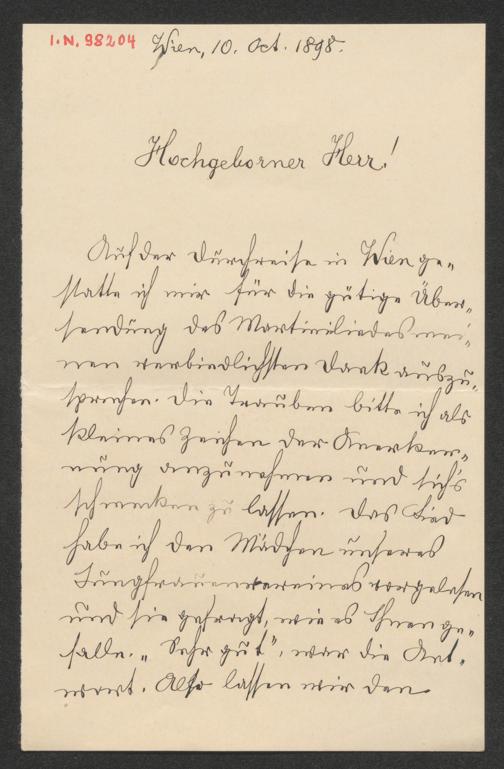 I.N. 98204
Wien, 10. Oct. 1898.
Hochgeborner Herr!
Auf der Durchreise in Wien ge-
statte ich mir für die gütige Über-
sendung des Martiniliedes mei-
nen verbindlichsten Dank auszu-
sprechen. Die Trauben bitte ich als
kleines Zeichen der Anerken-
nung anzunehmen und sich's
schmecken zu lassen. Das Lied
habe ich den Mädchen unseres
Jungfrauenvereines vorgelesen
und sie gefragt, wie es Ihnen ge-
falle. „Sehr gut", war die Ant-
wort. Also lassen wir den